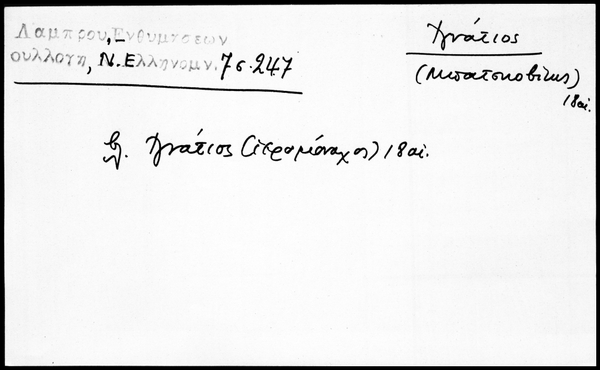 Λαμπρου, Ενθυμησεων
συλλογη, Ν. Ελληνομν. 7 σ. 247
Ιγνάτιος
(Μπατσκοβίτης)
18 αι.
βλ. Ιγνάτιος (ιερομόναχος) 18 αι.